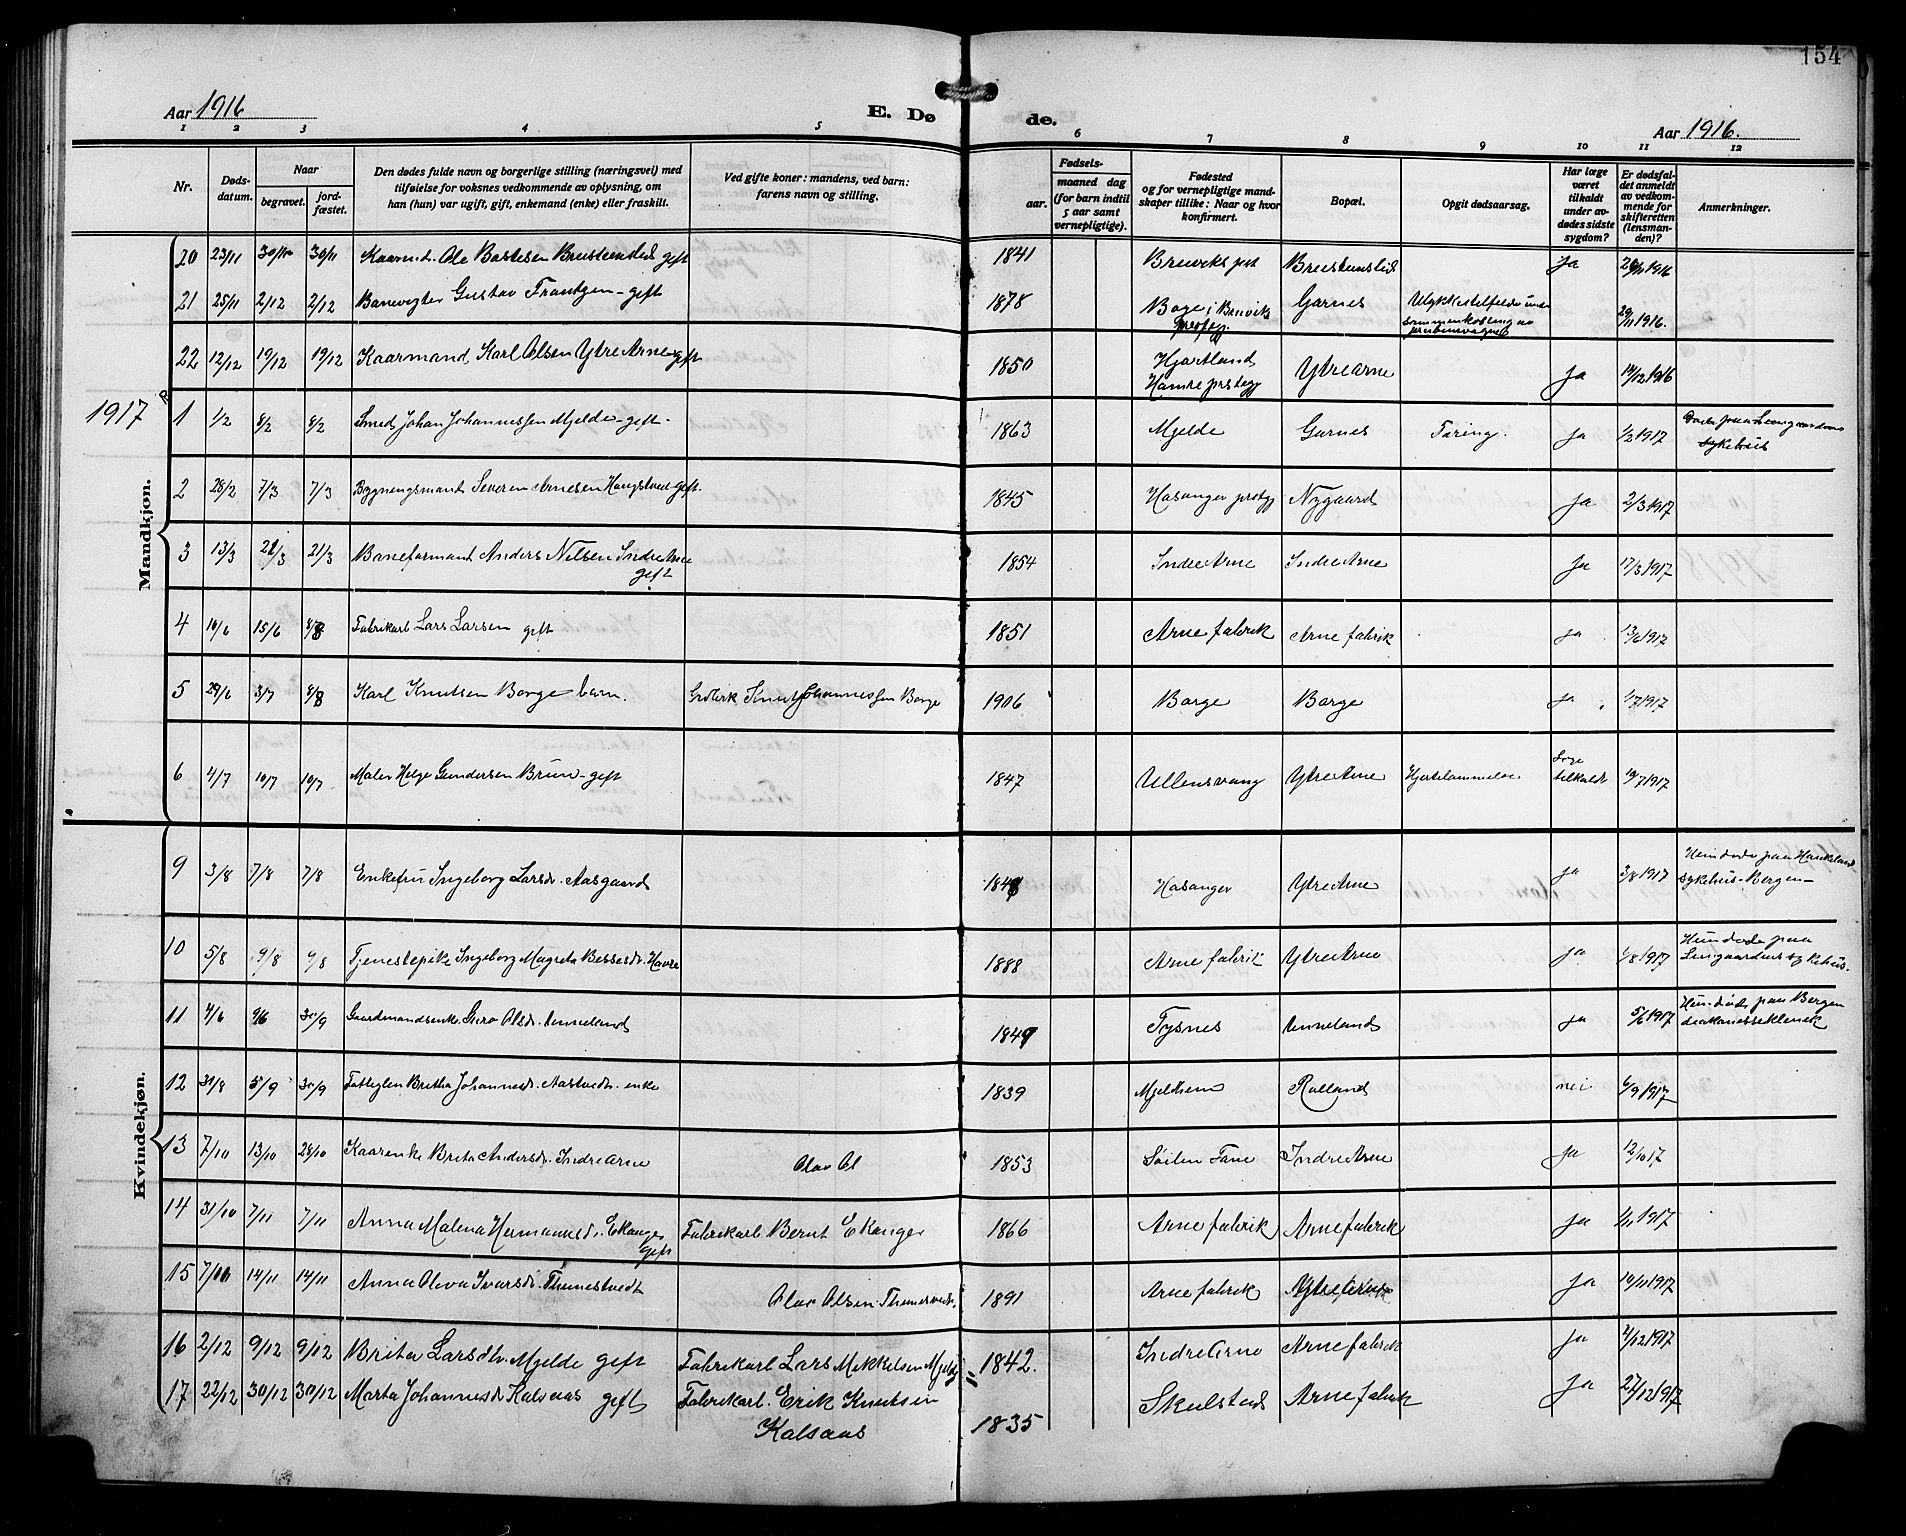 154
Aar 1916
E. Dø de.
Aar 1916.
1 2 3 4 5 6 7 8 9 10 11 12
Nr.
Døds-
datum.
Naar
begravet.
jord-
fæstet.
Den dødes fulde navn og borgerlige stilling (næringsvei) med
tilføielse for voksnes vedkommende av oplysning, om
han (hun) var ugift, gift, enkemand (enke) eller fraskilt.
Ved gifte koner: mandens, ved barn:
farens navn og stilling.
Fødsels-
aar.
maaned dag
(for barn indtil
5 aar samt
vernepligtige).
Fødested
og for vernepligtige mand-
skaper tillike: Naar og hvor
konfirmert.
Bopæl.
Opgit dødsaarsag.
Har læge
været
tilkaldt
under av-
dødes sidste
sygdom?
Er dødsfal-
det anmeldt
av vedkom-
mende for
skifteretten
(lensman-
den)?
Anmerkninger.
Mandkjøn.
20 23/11 30/11 30/11 Kaarm. Ole Bastesen gift 1841 Breviks pst ja 1916
21 25/11 2/12 2/12 Banevogter Gustav Frantzen - gift 1878 Garnes 29/11 1916.
22 12/12 19/12 19/12 Kaarmand Karl Olsen Ytre Arne gift 1850 Hjortland
Hamre prstegj Ytre Arne ja 14/12 1916
1917
1 1/2 8/2 8/2 Smed Johan Johannessen Mjelde - gift. 1863 Mjelde Garnes Tæring. ja 1/2 1917
sykehus
2 28/2 7/3 7/3 Bygningsmand Severin Arnesen Haugstved gift. 1845 Hosanger prstgj Nygaard ja 2/3 1917
3 13/3 21/3 21/3 Baneformand Anders Nilsen Indre Arne
gift 1854 Indre Arne Indre Arne ja 17/3 1917
4 10/6 15/6 8/8 Fabrikarb Lars Larsen gift 1851 Arne fabrik Arne fabrik ja 13/6 1917
5 29/6 3/7 8/8 Karl Knutsen Borge barn. Knut Johannessen Borge 1906 Borge Borge ja 1/7 1917
6 4/7 10/7 10/7 Maler Helge Gundersen Bruu - gift 1847 Ullensvang Ytre Arne Hjertelammelse Læge
tilkaldt 10/7 1917
Kvindekjøn.
9 3/8 7/8 7/8 Enkefru Ingeborg Larsdr. Aasgaard 1848 Hosanger Ytre Arne ja 3/8 1917 Hun døde paa Haukeland
sykehus - Bergen -
10 5/8 9/8 9/8 Tjenestepike Ingeborg Magreta Bessesdr. Havre 1888 Arne fabrik Ytre Arne ja 6/8 1917 Hun døde paa
Lungaardens sykehus.
11 4/6 9/6 30/9 Gaardmandsenke Guro Olsdr. Unneland 1849 Tysnes Unneland ja 5/6 1917 Hun døde paa Bergen
diakonisseklinik
12 31/8 5/9 30/9 Fattiglem Britha Johannesdr. Aastvedt. enke 1839 Mjeldheim Rolland nei 6/9 1917
13 7/10 13/10 28/10 Kaarenke Brita Andersdr. Indre Arne Olav Ol 1853 Søilen Fane Indre Arne ja 12/10 17
14 31/10 7/11 7/11 Anna Malena Hermannsdr. Ekanger
gift Fabrikarb Bernt Ekanger 1866 Arne fabrik Arne fabrik ja 1/11 1917
15 14/11 14/11 Anna Oliva Ivarsdr. Thunestvedt Olav Olsen Thunestvedt. 1891 Arne fabrik Ytre Arne ja 10/11 1917
16 2/12 9/12 9/12 Brita Larsdtr. Mjelde gift Fabrikarb Lars Mikkelsen Mjelde 1842. Indre Arne Arne fabrik ja 4/12 1917
17 22/12 30/12 30/12 Marta Johannesdr Kalsaas gift Fabrikarb. Erik Knutsen
Kalsaas 1835 Skulstad Arne fabrik ja 27/12 1917